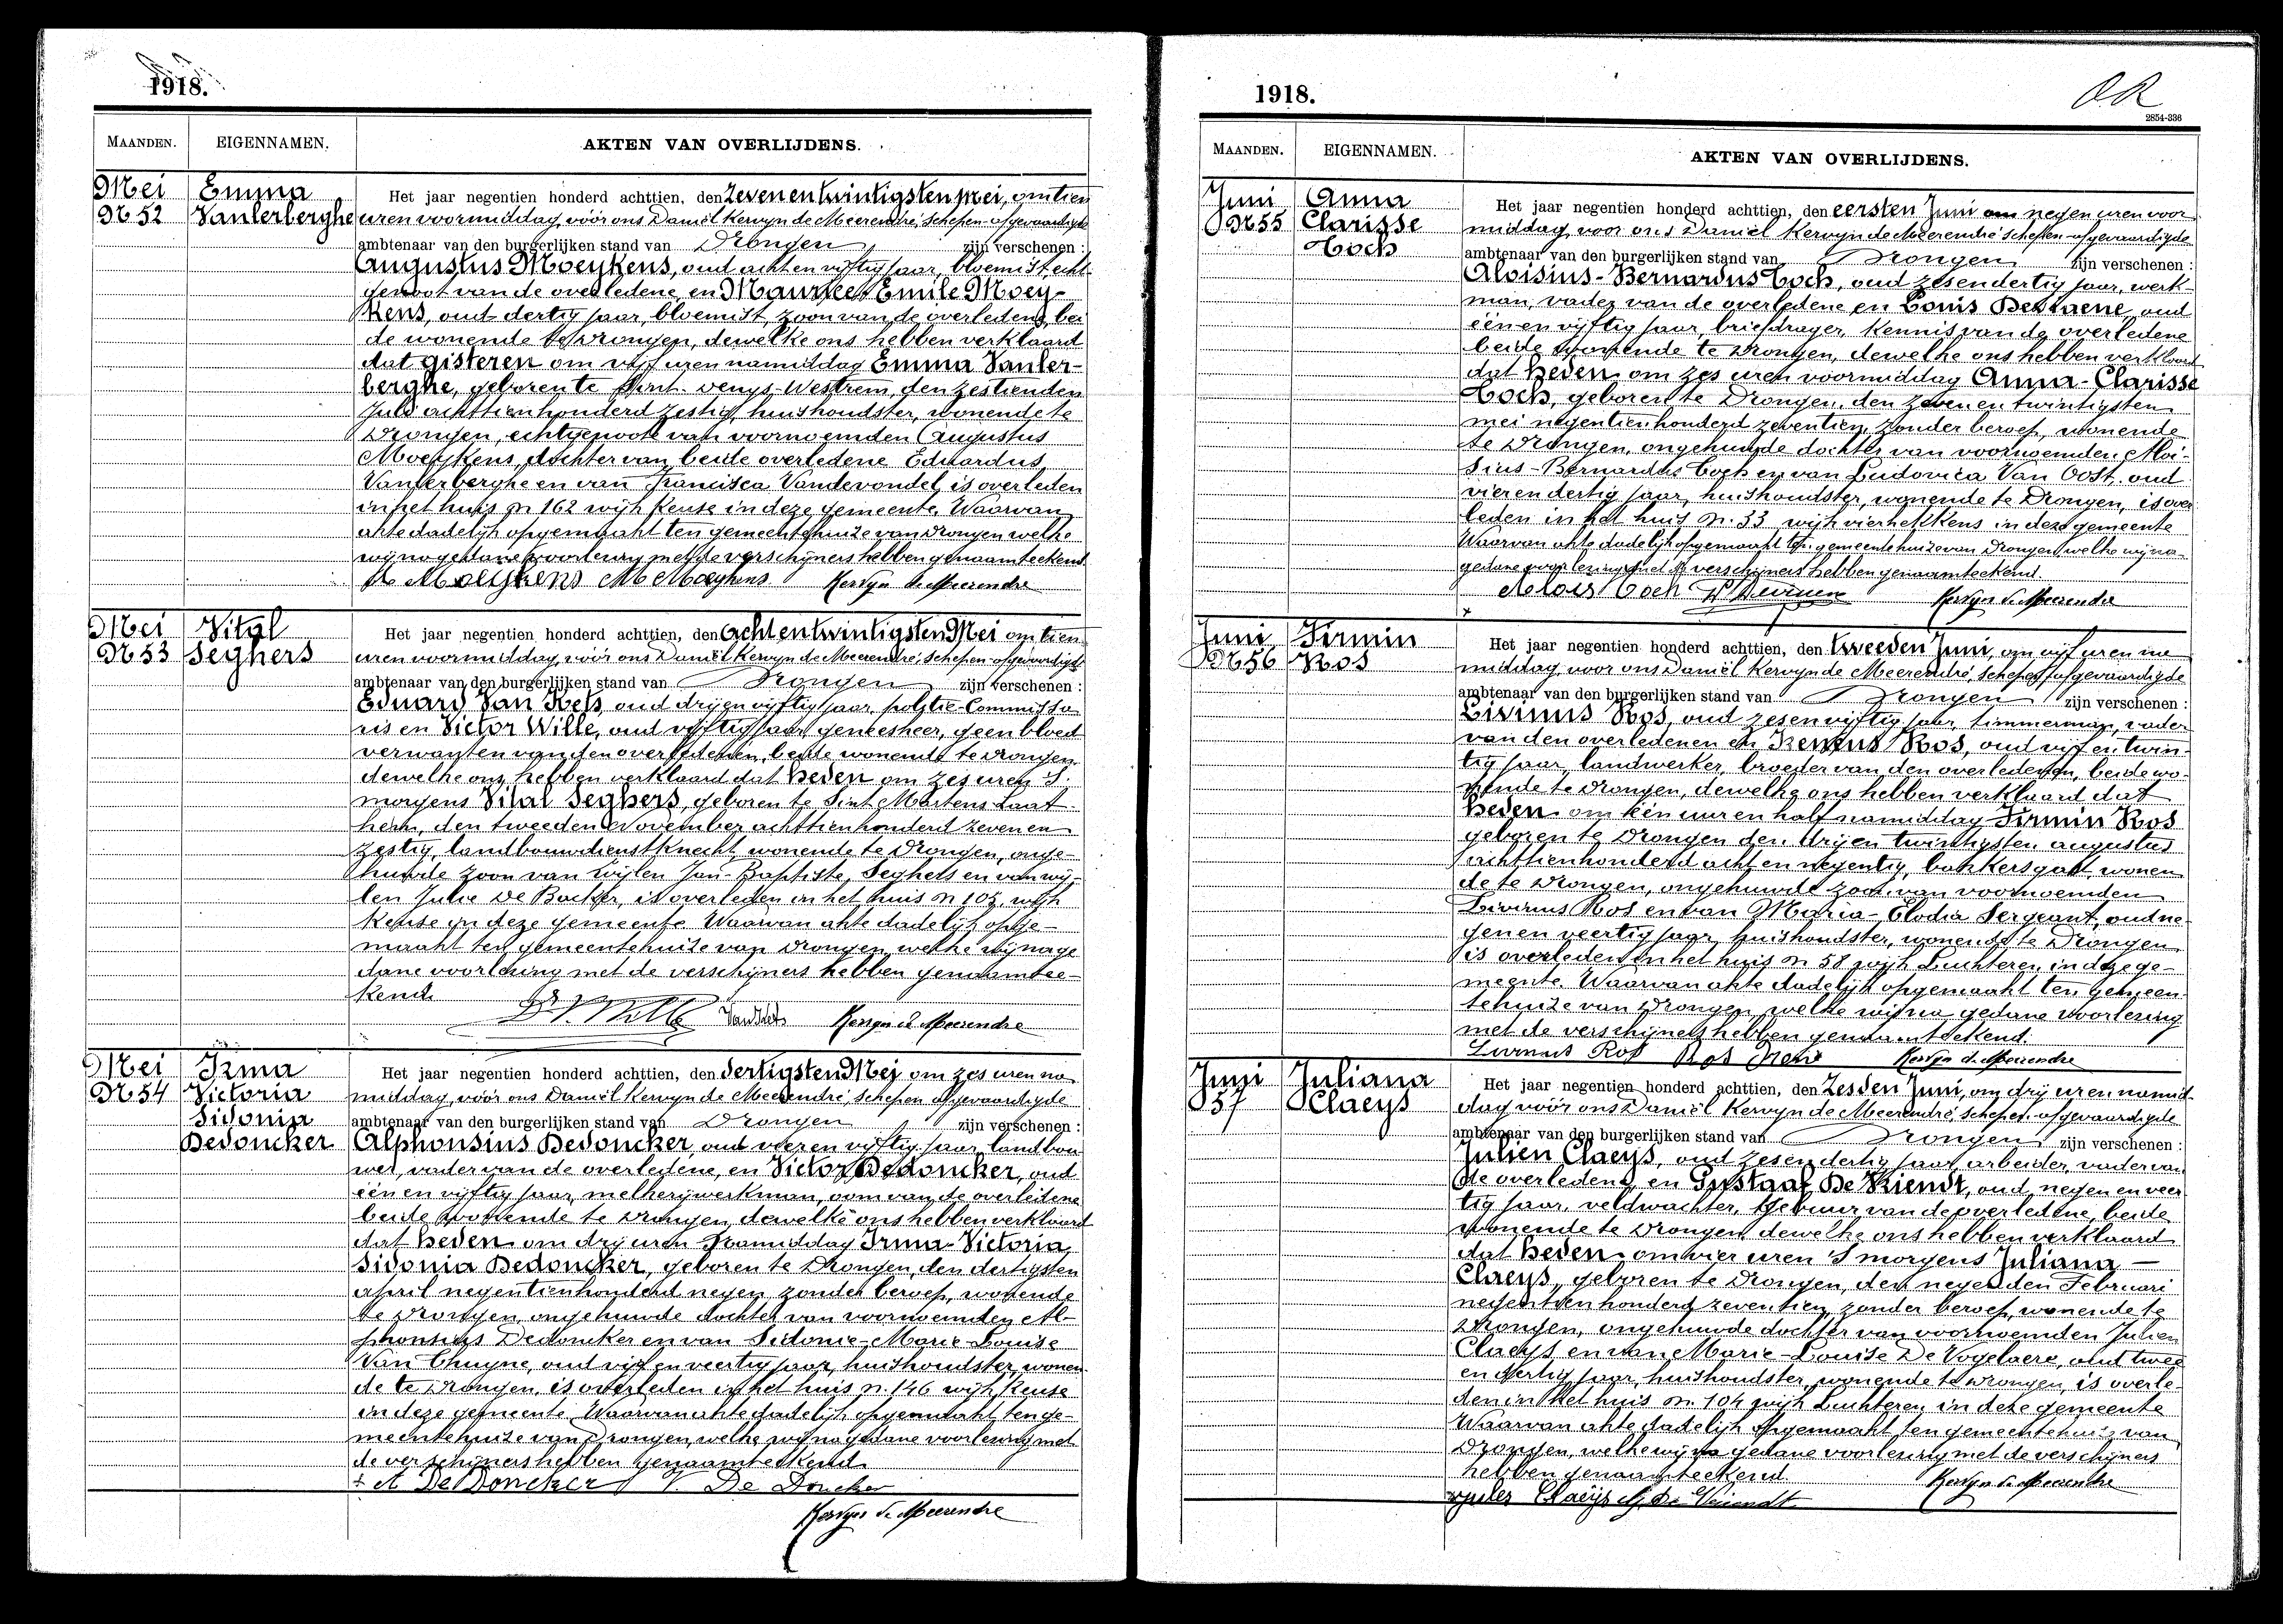 1918.
MAANDEN. EIGENNAMEN. AKTEN VAN OVERLIJDENS.
Mei Emma
N 52 Vanlerberghe
Het jaar negentien honderd achttien, den zevenentwintigsten mei, om tien
uren voormiddag, vóór ons Daniël Kervyn de Meerendré, schepen-afgevaardigde
ambtenaar van den burgerlijken stand van Drongen zijn verschenen :
Augustus Moeykens, oud acht en vijftig jaar, bloemist, echt-
genoot van de overledene, en Maurice Emile Moey-
kens, oud dertig jaar, bloemist, zoon van de overledene, bei
de wonende te Drongen, dewelke ons hebben verklaard
dat gisteren om vijf uren namiddag Emma Vanler-
berghe, geboren te Sint-Denys-Westrem, den zestienden
Juli achttienhonderd zestig, huishoudster, wonende te
Drongen, echtgenoote van voornoemden Augustus
Moeykens, dochter van beide overledene Eduardus
Vanlerberghe en van Francisca Vandevondel, is overleden
in het huis n 162 wijk Keuse in deze gemeente. Waarvan
akte dadelijk opgemaakt ten gemeentehuize van Drongen welke
wij na gedane voorlezing met de verschijners hebben genaamteekend.
A Moeykens M Moeykens Kervyn de Meerendre
Mei Vital
N 53 Seghers
Het jaar negentien honderd achttien, den achtentwintigsten Mei om tien
uren voormiddag, vóór ons Daniël Kervyn de Meerendré, schepen-afgevaardigde
ambtenaar van den burgerlijken stand van Drongen zijn verschenen :
Eduard Van Hets, oud drijen vijftig jaar, politie-Commissa
ris en Victor Wille, oud vijftig jaar, geneesheer, geen bloed
verwanten van den overledenen, beide wonende te Drongen,
dewelke ons hebben verklaard dat heden om zes uren 's
morgens Vital Seghers, geboren te Sint Martens Laat-
hem, den tweeden November achttienhonderd zeven en
zestig, landbouwdienstknecht, wonende te Drongen, onge-
huwde zoon van wijlen Jan-Baptiste Seghers en van wij-
len Julie De Backer, is overleden in het huis n 105, wijk
Keuse in deze gemeente. Waarvan akte dadelijk opge-
maakt ten gemeentehuize van Drongen, welke wij na ge
dane voorlezing met de verschijners hebben genaamtee-
kend.
Dr V. Wille Kervyn de Meerendre
Mei Irma
N 54 Victoria
Sidonia
Dedoncker
Het jaar negentien honderd achttien, den dertigsten Mei om zes uren na
middag, vóór ons Daniël Kervyn de Meerendré, schepen afgevaardigde
ambtenaar van den burgerlijken stand van Drongen zijn verschenen :
Alphonsius Dedoncker, oud vier en vijftig jaar, landbou
wer, vader van de overledene, en Victor Dedoncker, oud
één en vijftig jaar, melkerijwerkman, oom van de overledene
beide wonende te Drongen, dewelke ons hebben verklaard
dat heden om drij uren namiddag Irma-Victoria
Sidonia Dedoncker, geboren te Drongen, den dertigsten
april negentienhonderd negen, zonder beroep, wonende
te Drongen, ongehuwde dochter van voornoemden Al-
phonsius Dedoncker en van Sidonie-Marie-Louise
Van Thuyne, oud vijf en veertig jaar, huishoudster, wonen
de te Drongen, is overleden in het huis n. 146 wijk Keuse
in deze gemeente. Waarvan akte dadelijk opgemaakt ten ge-
meentehuize van Drongen, welke wij na gedane voorlezing met
de verschijners hebben genaamteekend
+ A De Doncker V. De Doncker
Kervyn de Meerendre
1918.
2854-336
MAANDEN. EIGENNAMEN. AKTEN VAN OVERLIJDENS.
Juni Anna
N 55 Clarisse
Coch
Het jaar negentien honderd achttien, den eersten Juni om negen uren voor
middag, voor ons Daniël Kervyn de Meerendré schepen-afgevaardigde
ambtenaar van den burgerlijken stand van Drongen zijn verschenen :
Aloisius-Bernardus Coch, oud zesendertig jaar, werk-
man, vader van de overledene en Louis Destuene, oud
één en vijftig jaar, briefdrager, kennis van de overledene
beide wonende te Drongen, dewelke ons hebben verklaard
dat heden om zes uren voormiddag Anna-Clarisse
Coch, geboren te Drongen, den zeven en twintigsten
mei negentienhonderd zeventien, zonder beroep, wonende
te Drongen, ongehuwde dochter van voornoemden Aloi-
sius-Bernardus Coch en van Ludovica Van Oost, oud
vier en dertig jaar, huishoudster, wonende te Drongen, is over
leden in het huis n. 33 wijk vierhekkens in deze gemeente
Waarvan akte dadelijk opgemaakt ten gemeentehuize van Drongen, welke wij na-
gedane voorlezing met de verschijners hebben genaamteekend.
Alois Coch Kervyn de Meerendre
Juni Firmin
N 56 Ros
Het jaar negentien honderd achttien, den tweeden Juni, om vijf uren na
middag, voor ons Daniël Kervyn de Meerendré, schepen afgevaardigde
ambtenaar van den burgerlijken stand van Drongen zijn verschenen :
Livinus Ros, oud zesen vijftig jaar, timmerman, vader
van den overledenen en Ireneus Ros, oud vijf en twin-
tig jaar, landwerker, broeder van den overledenen, beide wo-
nende te Drongen, dewelke ons hebben verklaard dat
heden om één uur en half namiddag Firmin Ros
geboren te Drongen den drij en twintigsten augustus
achttienhonderd acht en negentig, bakkersgast, wonen
de te Drongen, ongehuwde zoon van voornoemden
Livinus Ros en van Maria-Elodia Sergeant, oud ne
gen en veertig jaar, huishoudster, wonende te Drongen
is overleden in het huis n 58 wijk Luchteren in deze ge-
meente. Waarvan akte dadelijk opgemaakt ten gemeen-
tehuize van Drongen, welke wij na gedane voorlezing
met de verschijners hebben genaamteekend.
Livinus Ros Ros Irené Kervyn de Meerendre
Juni Juliana
57 Claeys
Het jaar negentien honderd achttien, den zesden Juni, om drij uren namid-
dag vóór ons Daniël Kervyn de Meerendré, schepen-afgevaardigde
ambtenaar van den burgerlijken stand van Drongen zijn verschenen :
Julien Claeys, oud zesendertig jaar, arbeider, vader van
de overledene, en Gustaaf De Vriendt, oud negen en veer
tig jaar, veldwachter, gebuur van de overledene, beide
wonende te Drongen, dewelke ons hebben verklaard
dat heden om vier uren 's morgens Juliana
Claeys, geboren te Drongen, den negenden Februari
negentienhonderd zeventien, zonder beroep, wonende te
Drongen, ongehuwde dochter van voornoemden Julien
Claeys en van Marie-Louise De Vogelaere, oud twee
en dertig jaar, huishoudster, wonende te Drongen, is overle-
den in het huis n. 104 wijk Luchteren in deze gemeente
Waarvan akte dadelijk opgemaakt ten gemeentehuize van
Drongen, welke wij na gedane voorlezing met de verschijners
hebben genaamteekend. Kervyn de Meerendre
Jules Claeÿs G. De Vriendt